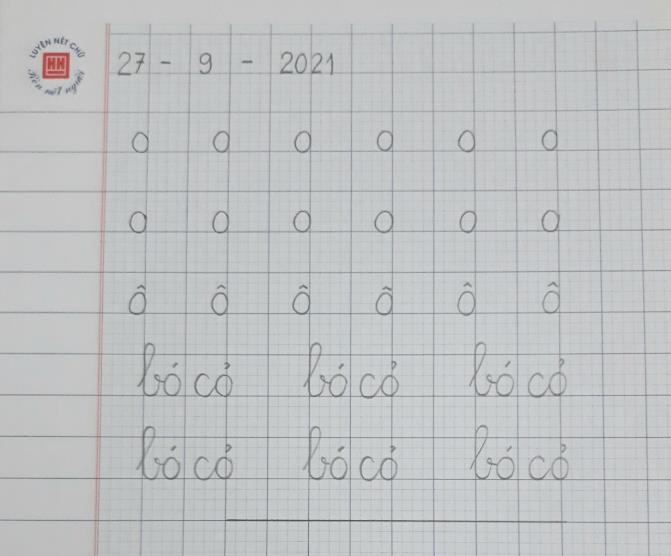 LUYỆN NÉT CHỮ
HH
Rèn nết người
27 - 9 - 2021
o o o o o o
o o o o o o
ô ô ô ô ô ô
bó cỏ bó cỏ bó cỏ
bó cỏ bó cỏ bó cỏ